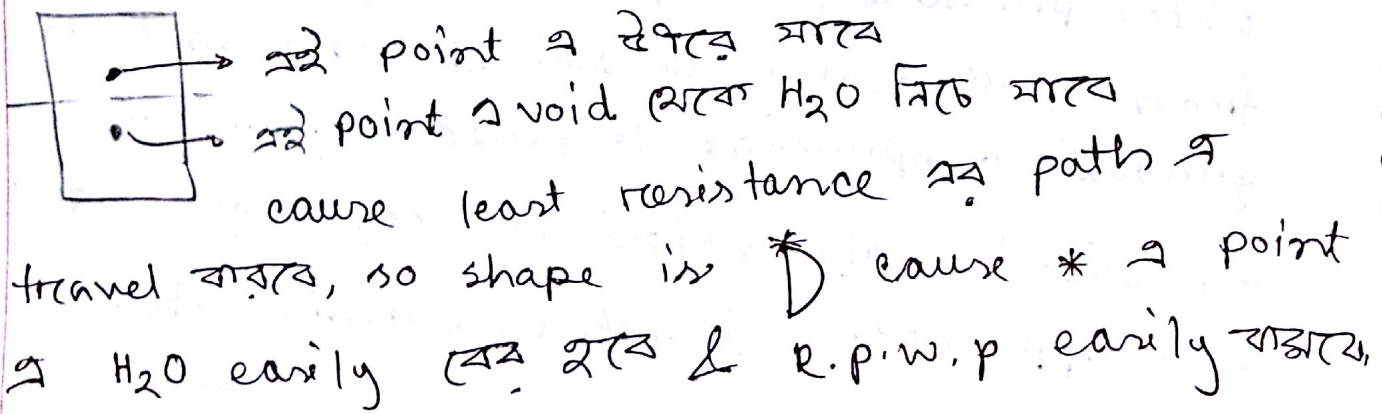 এই point এ উপরে যাবে
এই point এ void থেকে H₂O নিচে যাবে
cause least resistance এর path এ
travel করবে, so shape is D cause * এ point
এ H₂O easily বের হবে & e.p.w.p easily কমবে,